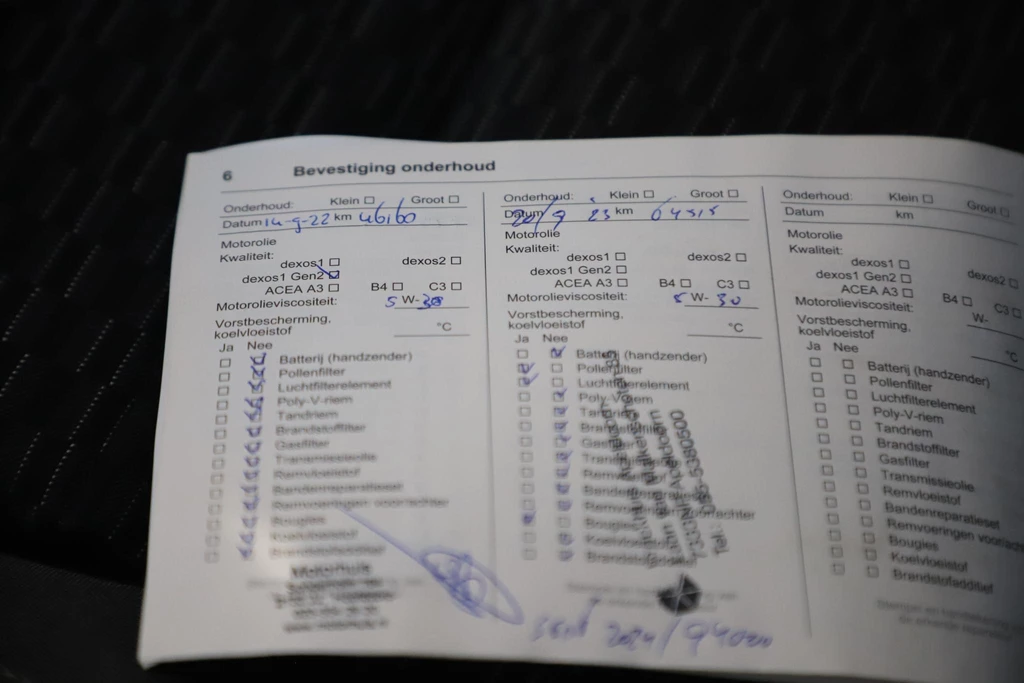 6 Bevestiging onderhoud
Onderhoud: Klein Groot
Datum 14-9-22 km 46160
Motorolie
Kwaliteit:
dexos1 dexos2
dexos1 Gen2
ACEA A3 B4 C3
Motorolieviscositeit: 5 W-30
Vorstbescherming, koelvloeistof °C
Ja Nee
Batterij (handzender)
Pollenfilter
Luchtfilterelement
Poly-V-riem
Tandriem
Brandstoffilter
Gasfilter
Transmissieolie
Remvloeistof
Bandenreparatieset
Remvoeringen voor/achter
Bougies
Koelvloeistof
Brandstofadditief
Motorhuis
Onderhoud: Klein Groot
Datum 9 23 km
Motorolie
Kwaliteit:
dexos1 dexos2
dexos1 Gen2
ACEA A3 B4 C3
Motorolieviscositeit: 5 W-30
Vorstbescherming, koelvloeistof °C
Ja Nee
Batterij (handzender)
Pollenfilter
Luchtfilterelement
Poly-V-riem
Tandriem
Brandstoffilter
Gasfilter
Transmissieolie
Remvloeistof
Bandenreparatieset
Remvoeringen voor/achter
Bougies
Koelvloeistof
Brandstofadditief
Apeldoorn
Tel.: 055-5380500
2024/94000
Onderhoud: Klein Groot
Datum km
Motorolie
Kwaliteit:
dexos1 dexos2
dexos1 Gen2
ACEA A3 B4 C3
Motorolieviscositeit: W-
Vorstbescherming, koelvloeistof °C
Ja Nee
Batterij (handzender)
Pollenfilter
Luchtfilterelement
Poly-V-riem
Tandriem
Brandstoffilter
Gasfilter
Transmissieolie
Remvloeistof
Bandenreparatieset
Remvoeringen
Bougies
Koelvloeistof
Brandstofadditief